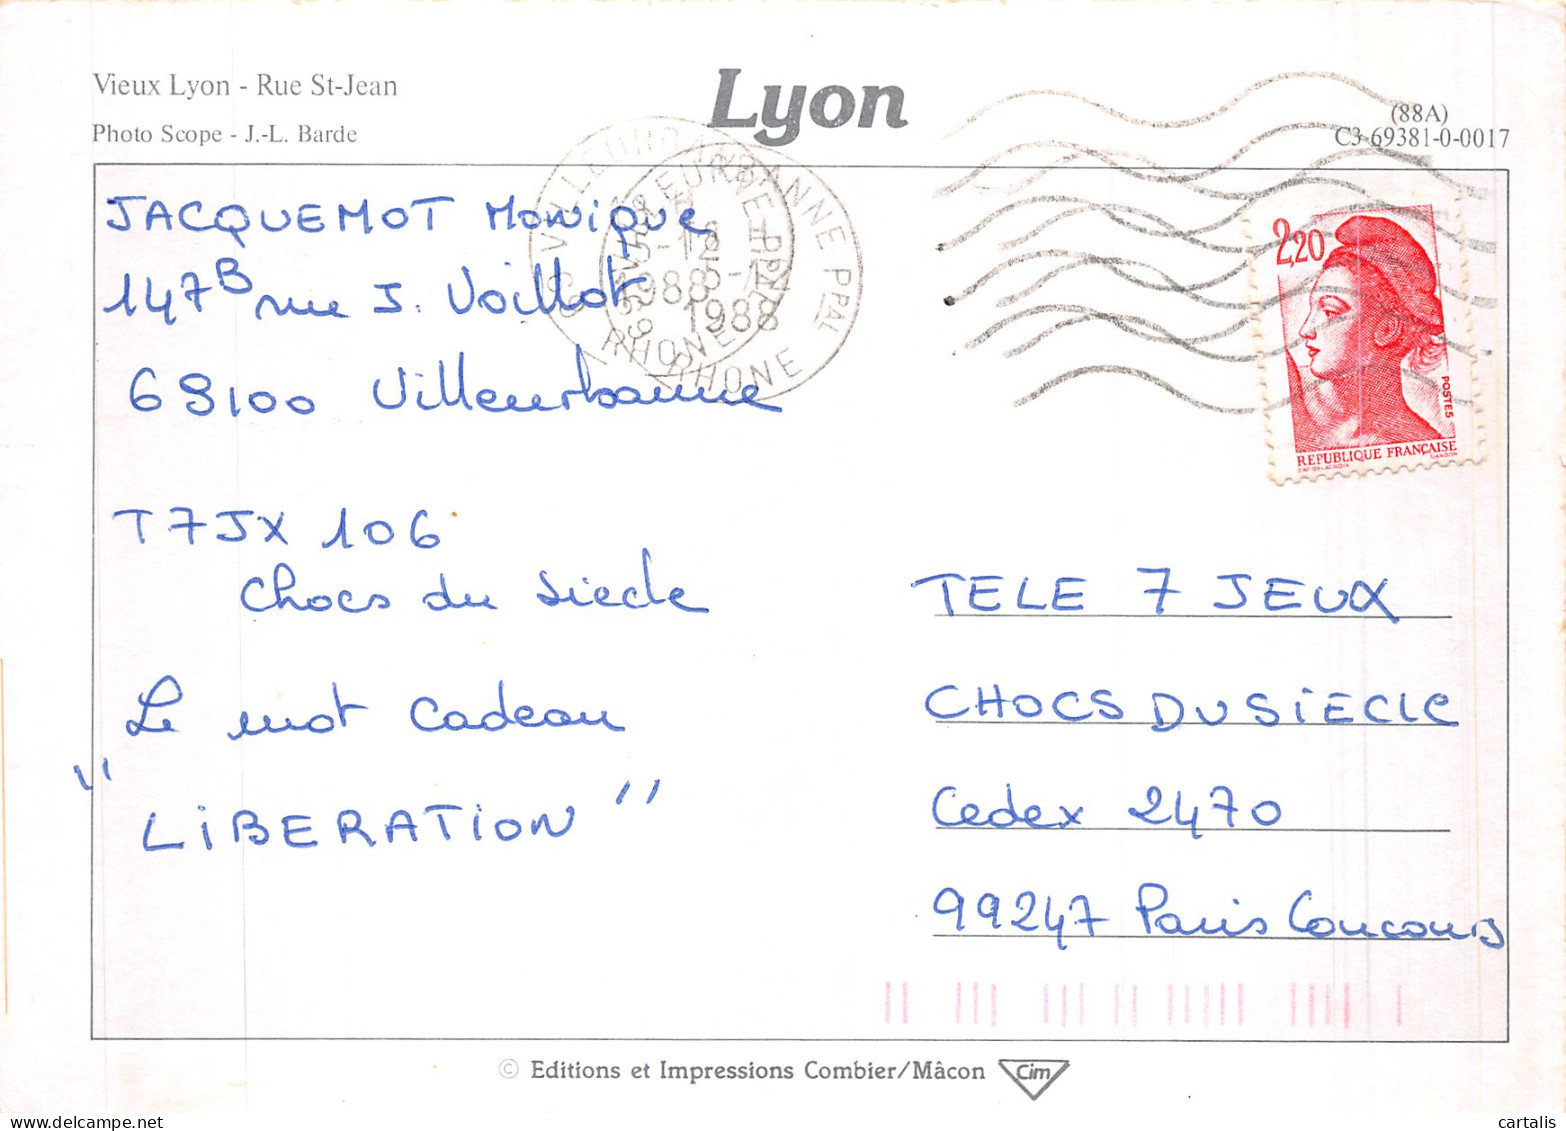 Vieux Lyon - Rue St-Jean
Photo Scope - J.-L. Barde
Lyon
(88A)
C3-69381-0-0017
JACQUEMOT Monique
147B rue J. Voillot
69100 Villeurbanne
T7JX 106
Chocs du Siecle
Le mot Cadeau
"LiBERATION"
VILLEURBANNE PPAL
1988
1988
RHONE
RHONE
2,20
POSTES
REPUBLIQUE FRANÇAISE
D'AP. DELACROIX
GANDON
TELE 7 JEUX
CHOCS DU SiECLE
Cedex 2470
99247 Paris Concours
© Editions et Impressions Combier/Mâcon
Cim
cartalis